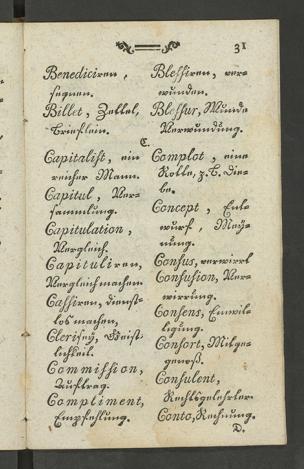 31
Benediciren,
segnen.
Billet, Zettel,
Brieflein.
Blessiren, ver=
wunden.
Blessur, Wunde
Verwundung.
C.
Capitalist, ein
reicher Mann.
Capitul, Ver=
sammlung.
Capitulation,
Vergleich.
Capituliren,
Vergleich machen
Cassiren, dienst=
los machen,
Clerisey, Geist=
lichkeit.
Commission,
Auftrag.
Compliment,
Empfehlung.
Complot, eine
Rotte, z.B. Die=
be.
Concept, Ent=
wurf, Mey=
nung.
Confus, verwirrt
Confusion, Ver=
wirrung.
Consens, Einwil=
ligung.
Consort, Mitge=
genoß.
Consulent,
Rechtsgelehrter.
Conto, Rechnung.
D.